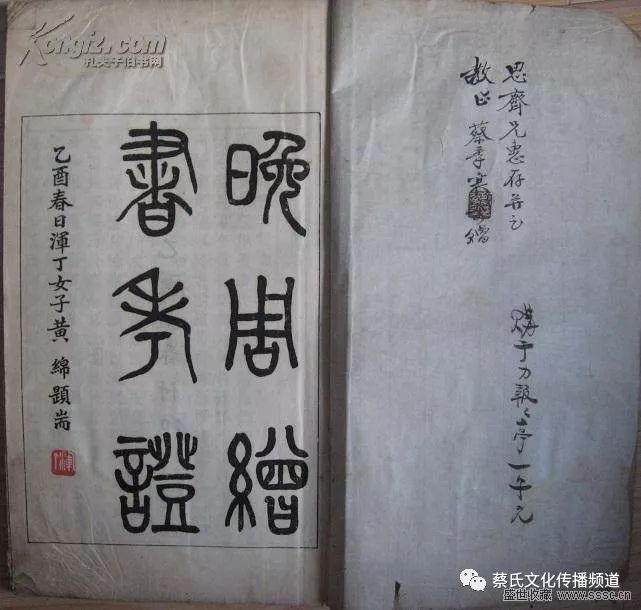 Kongfz.com
孔夫子旧书网
思齊兄惠存並乞
教正 蔡季襄 贈
購于力報
一千元
晚周繒
書考證
乙酉春日渾丁女子黃綿題耑
蔡氏文化传播频道
盛世收藏 www.sssc.cn